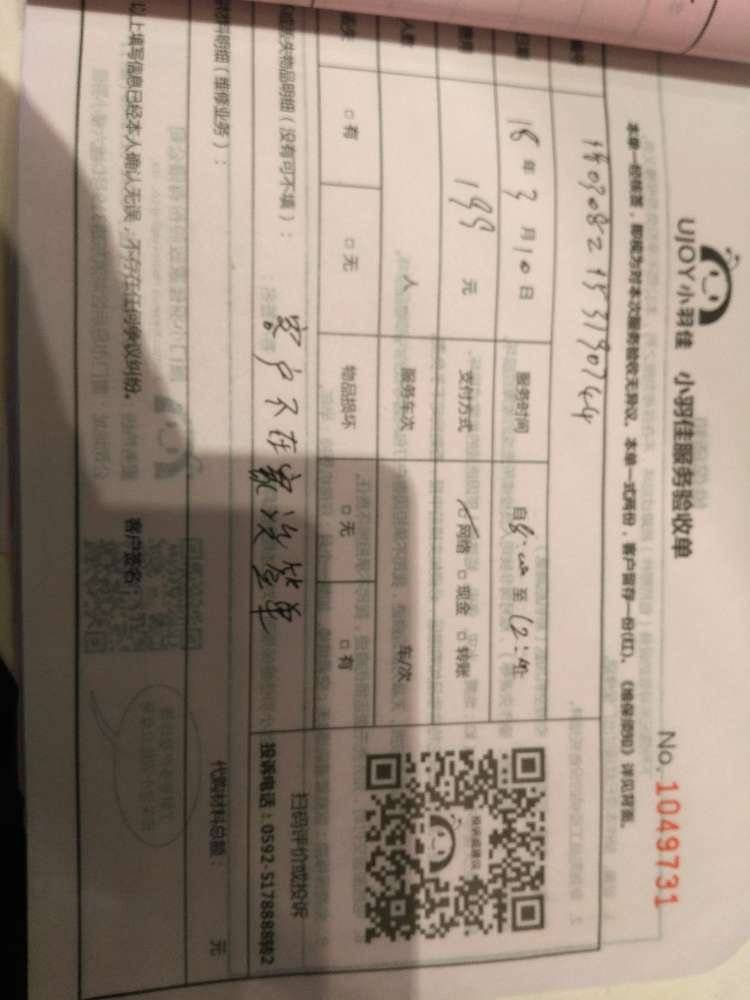 UJOY小羽佳 小羽佳服务验收单
No. 1049731
本单一经核签，即视为对本次服务验收无异议。本单一式两份，客户留存一份(红)。《维保须知》详见背面。
编号
日期 18年3月10日 服务时间 自8:00至12:00
199元 支付方式 网络 □现金 □转账
人数 人 服务车次 车/次
□有 □无 物品损坏 □无 □有
丢失物品明细（没有可不填）：
客户不在家没签单
扫码评价或投诉
投诉电话：0592-5178888转2
材料明细（维修业务）：
代购材料总额： 元
以上填写信息已经本人确认无误，不存在任何争议纠纷。 客户签名：